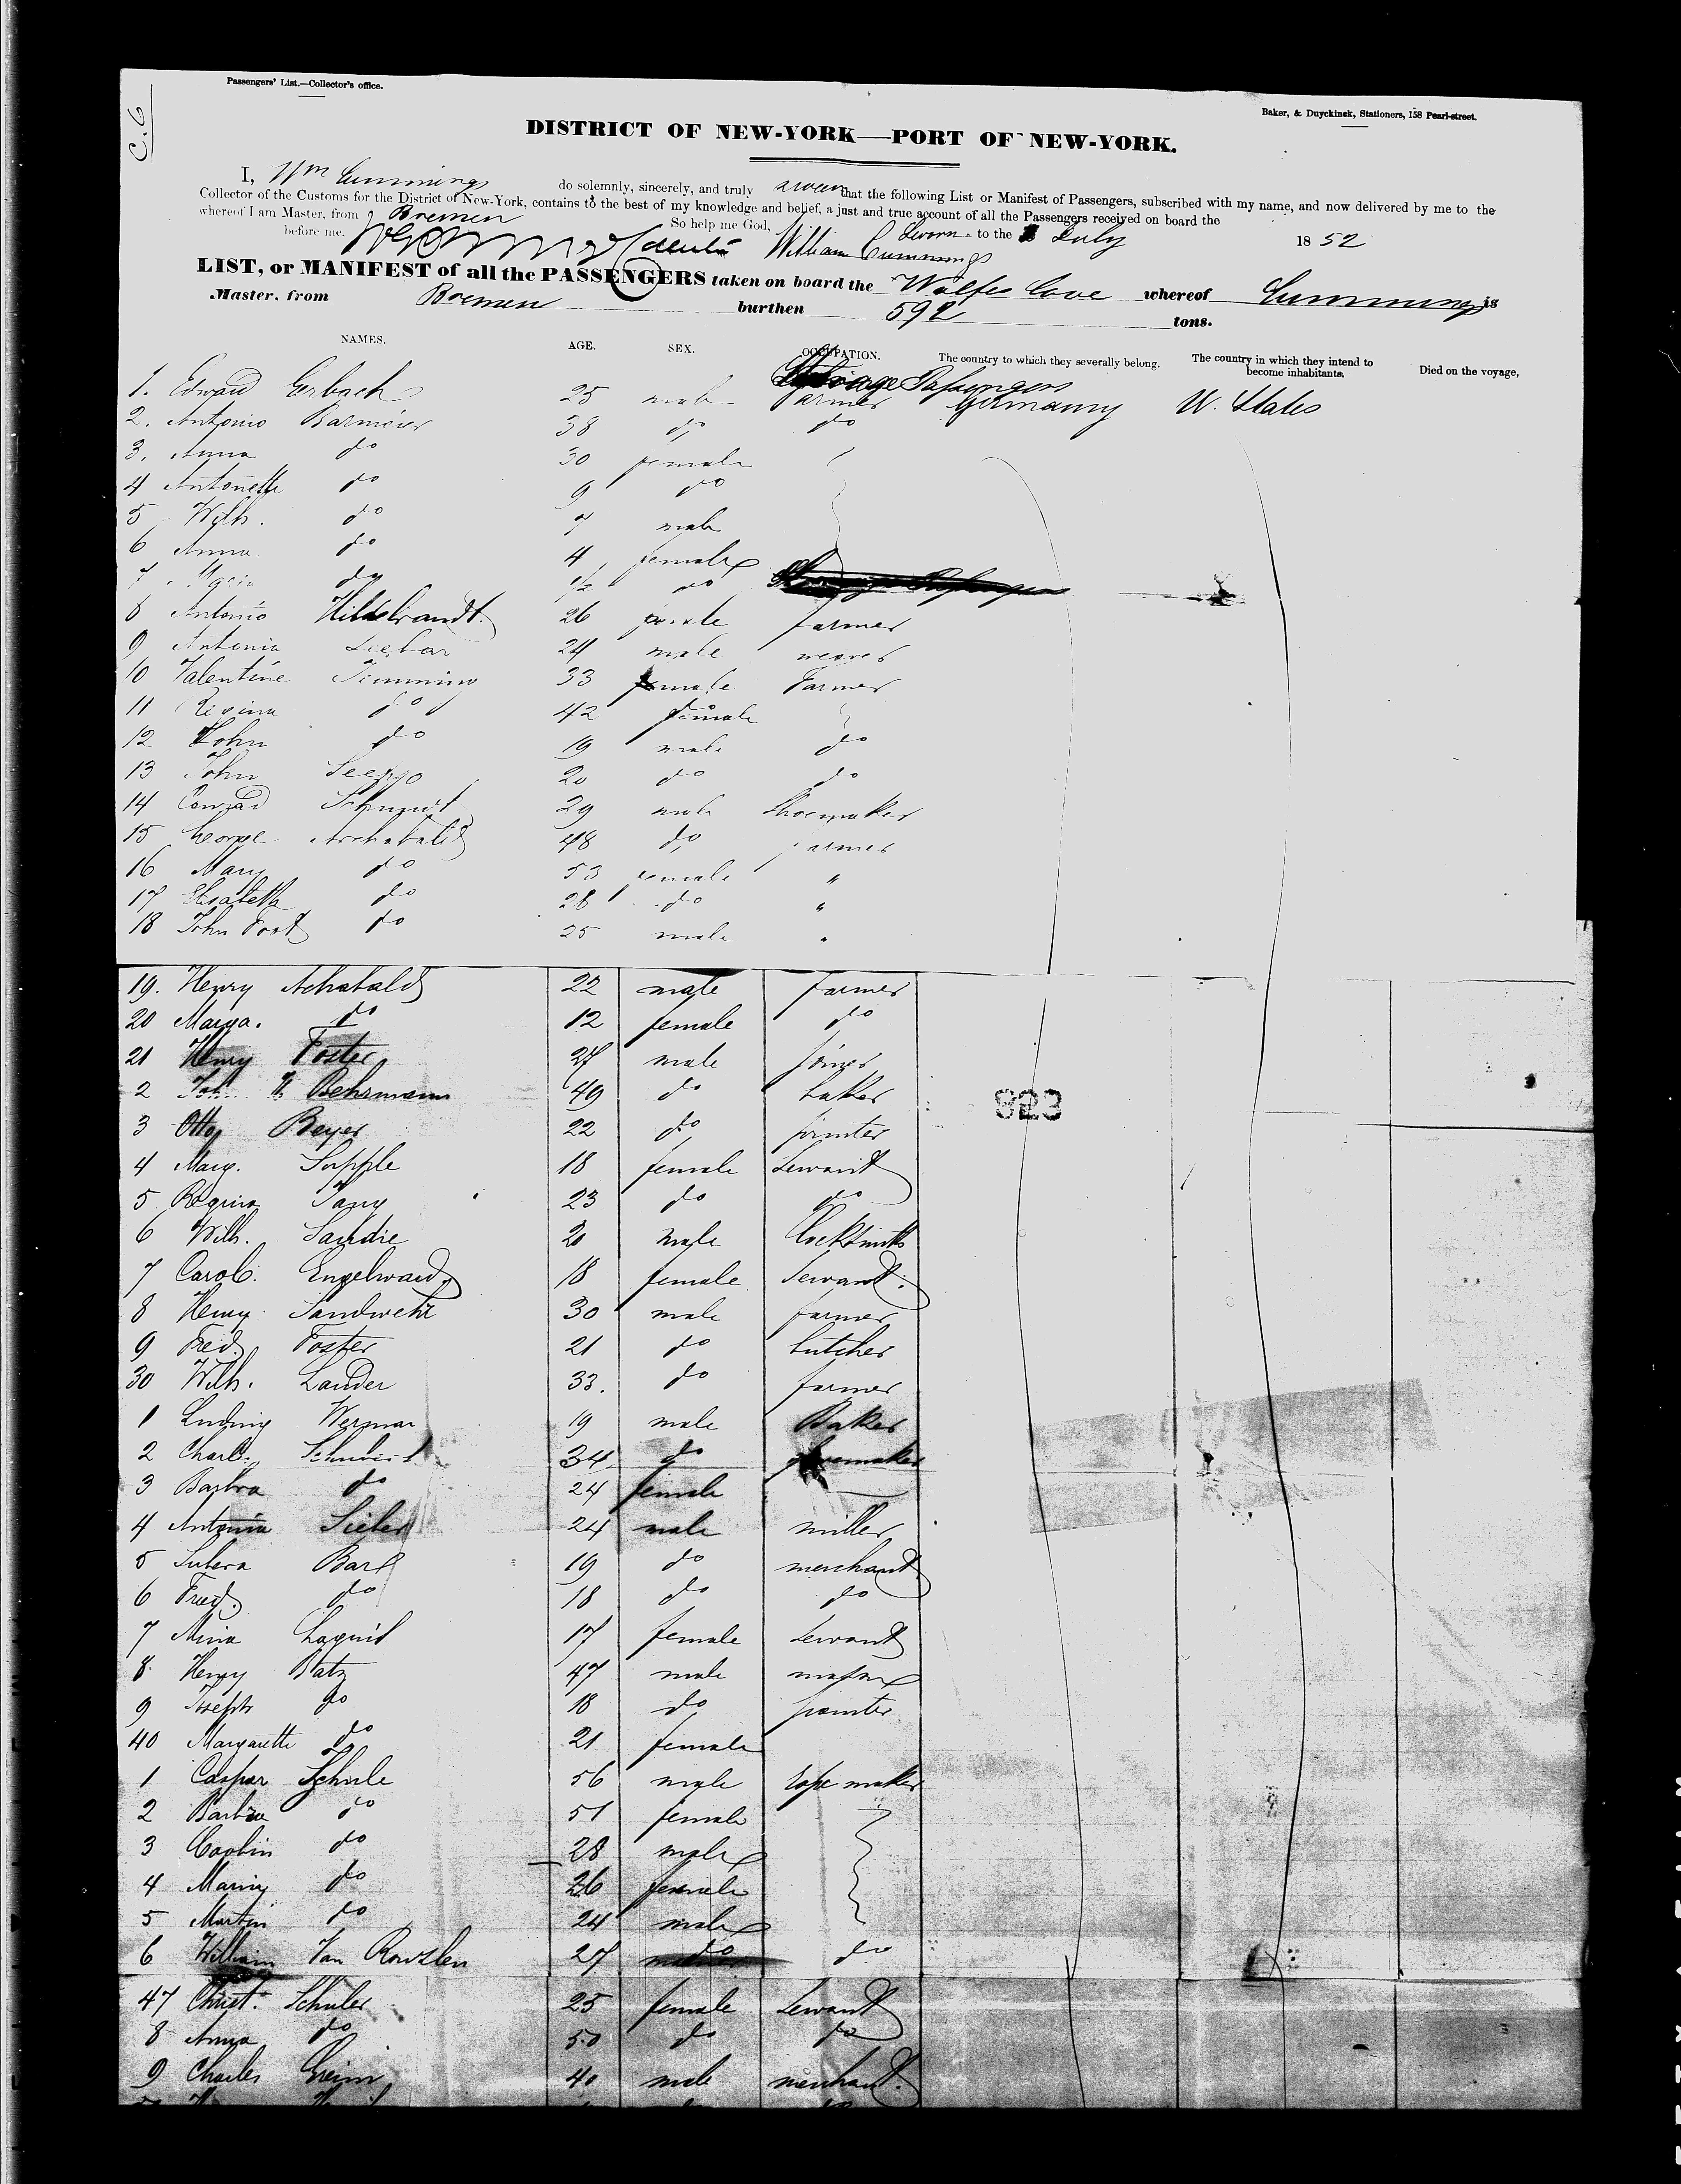 C.C
Passengers' List.—Collector's office.
Baker, & Duyckinck, Stationers, 158 Pearl-street.
DISTRICT OF NEW-YORK—PORT OF NEW-YORK.
I, Wm Cummings do solemnly, sincerely, and truly swear that the following List or Manifest of Passengers, subscribed with my name, and now delivered by me to the
Collector of the Customs for the District of New-York, contains to the best of my knowledge and belief, a just and true account of all the Passengers received on board the
whereof I am Master, from Bremen So help me God,
before me. William Cummings Sworn to the July 1852
LIST, or MANIFEST of all the PASSENGERS taken on board the Wolfes Cove whereof Cummings is
Master, from Bremen burthen 592 tons.
NAMES. AGE. SEX. OCCUPATION. The country to which they severally belong. The country in which they intend to become inhabitants. Died on the voyage,
Steerage Passengers
1. Edward Erbach 25 male farmer Germany U. States
2. Antonio Barmeier 38 do do
3. Anna do 30 female
4 Antonette do 9 do
5 Wilh. do 7 male
6 Anna do 4 female
7 do 1/2 do
8 Antonio Hildebrandt 26 male farmer
9 Antonia 24 male weaver
10 Valentine Timming 33 male Farmer
11 Regina do 42 female
12 John do 19 male do
13 John 20 do do
14 Conrad Schmidt 29 male Shoemaker
15 George Archabald 48 do farmer
16 Mary do 53 female "
17 Elisabeth do 28 do "
18 John Foot do 25 male "
19. Henry Achabald 22 male farmer
20 Marga. do 12 female do
21 Henry Foster 27 male joiner
2 Joh. H. Behrmann 49 do baker
3 Otto Beyer 22 do printer
4 Marg. Supple 18 female Servant
5 Regina 23 do do
6 Wilh. Sandie 20 male Clocksmith
7 Carol. Engelward 18 female Servant.
8 Henry Sandwehr 30 male farmer
9 Fred. Foster 21 do butcher
30 Wilh. Lander 33. do farmer
1 Ludwig Wermar 19 male Baker
2 Charl. Schubert 34 do
3 Barbra do 24 female
4 Antonia Sieber 24 male miller
5 Barl 19 do merchant
6 Fred. do 18 do do
7 Mina Laquit 17 female Servant
8 Henry Batz 47 male mason
9 Joseph do 18 do painter
40 Margarette do 21 female
1 Caspar Schule 56 male rope maker
2 Barbra do 51 female
3 do 28 male
4 do 26 female
5 Martin do 24 male
6 William Van 27 do do
823
47 Christ. Schuler 25 female Servant
8 Anna do 50 do do
9 Charles Greim 40 male merchant.